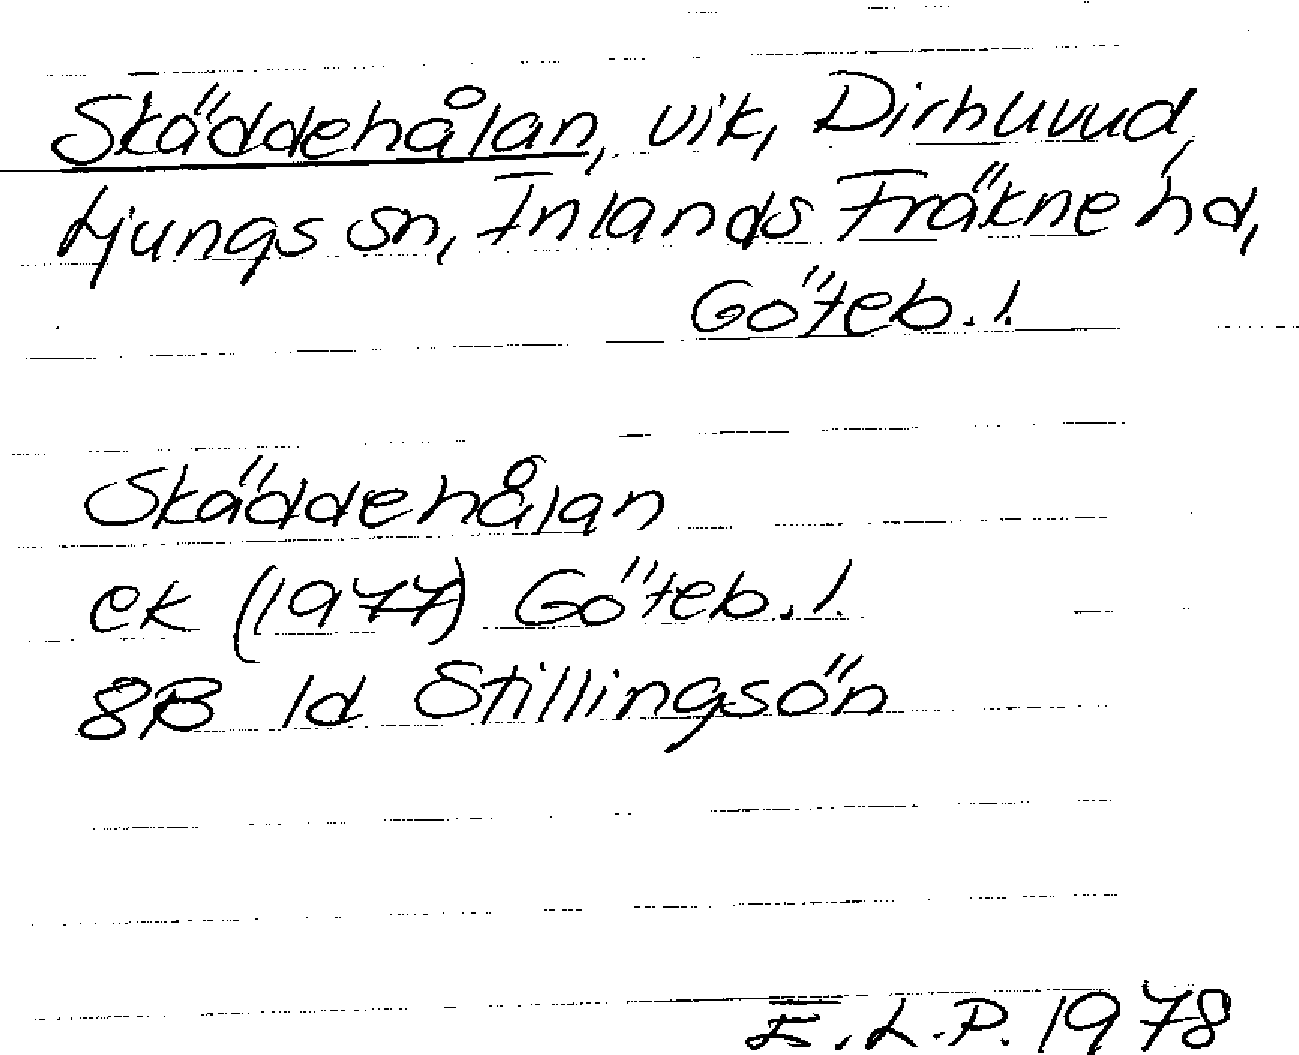 Skäddehålan, vik, Dirhuvud,
Ljungs sn, Inlands Fräkne hd,
Göteb. l.
Skäddehålan
ek (1977) Göteb. l.
8B 1d Stillingsön
E.L.P. 1978